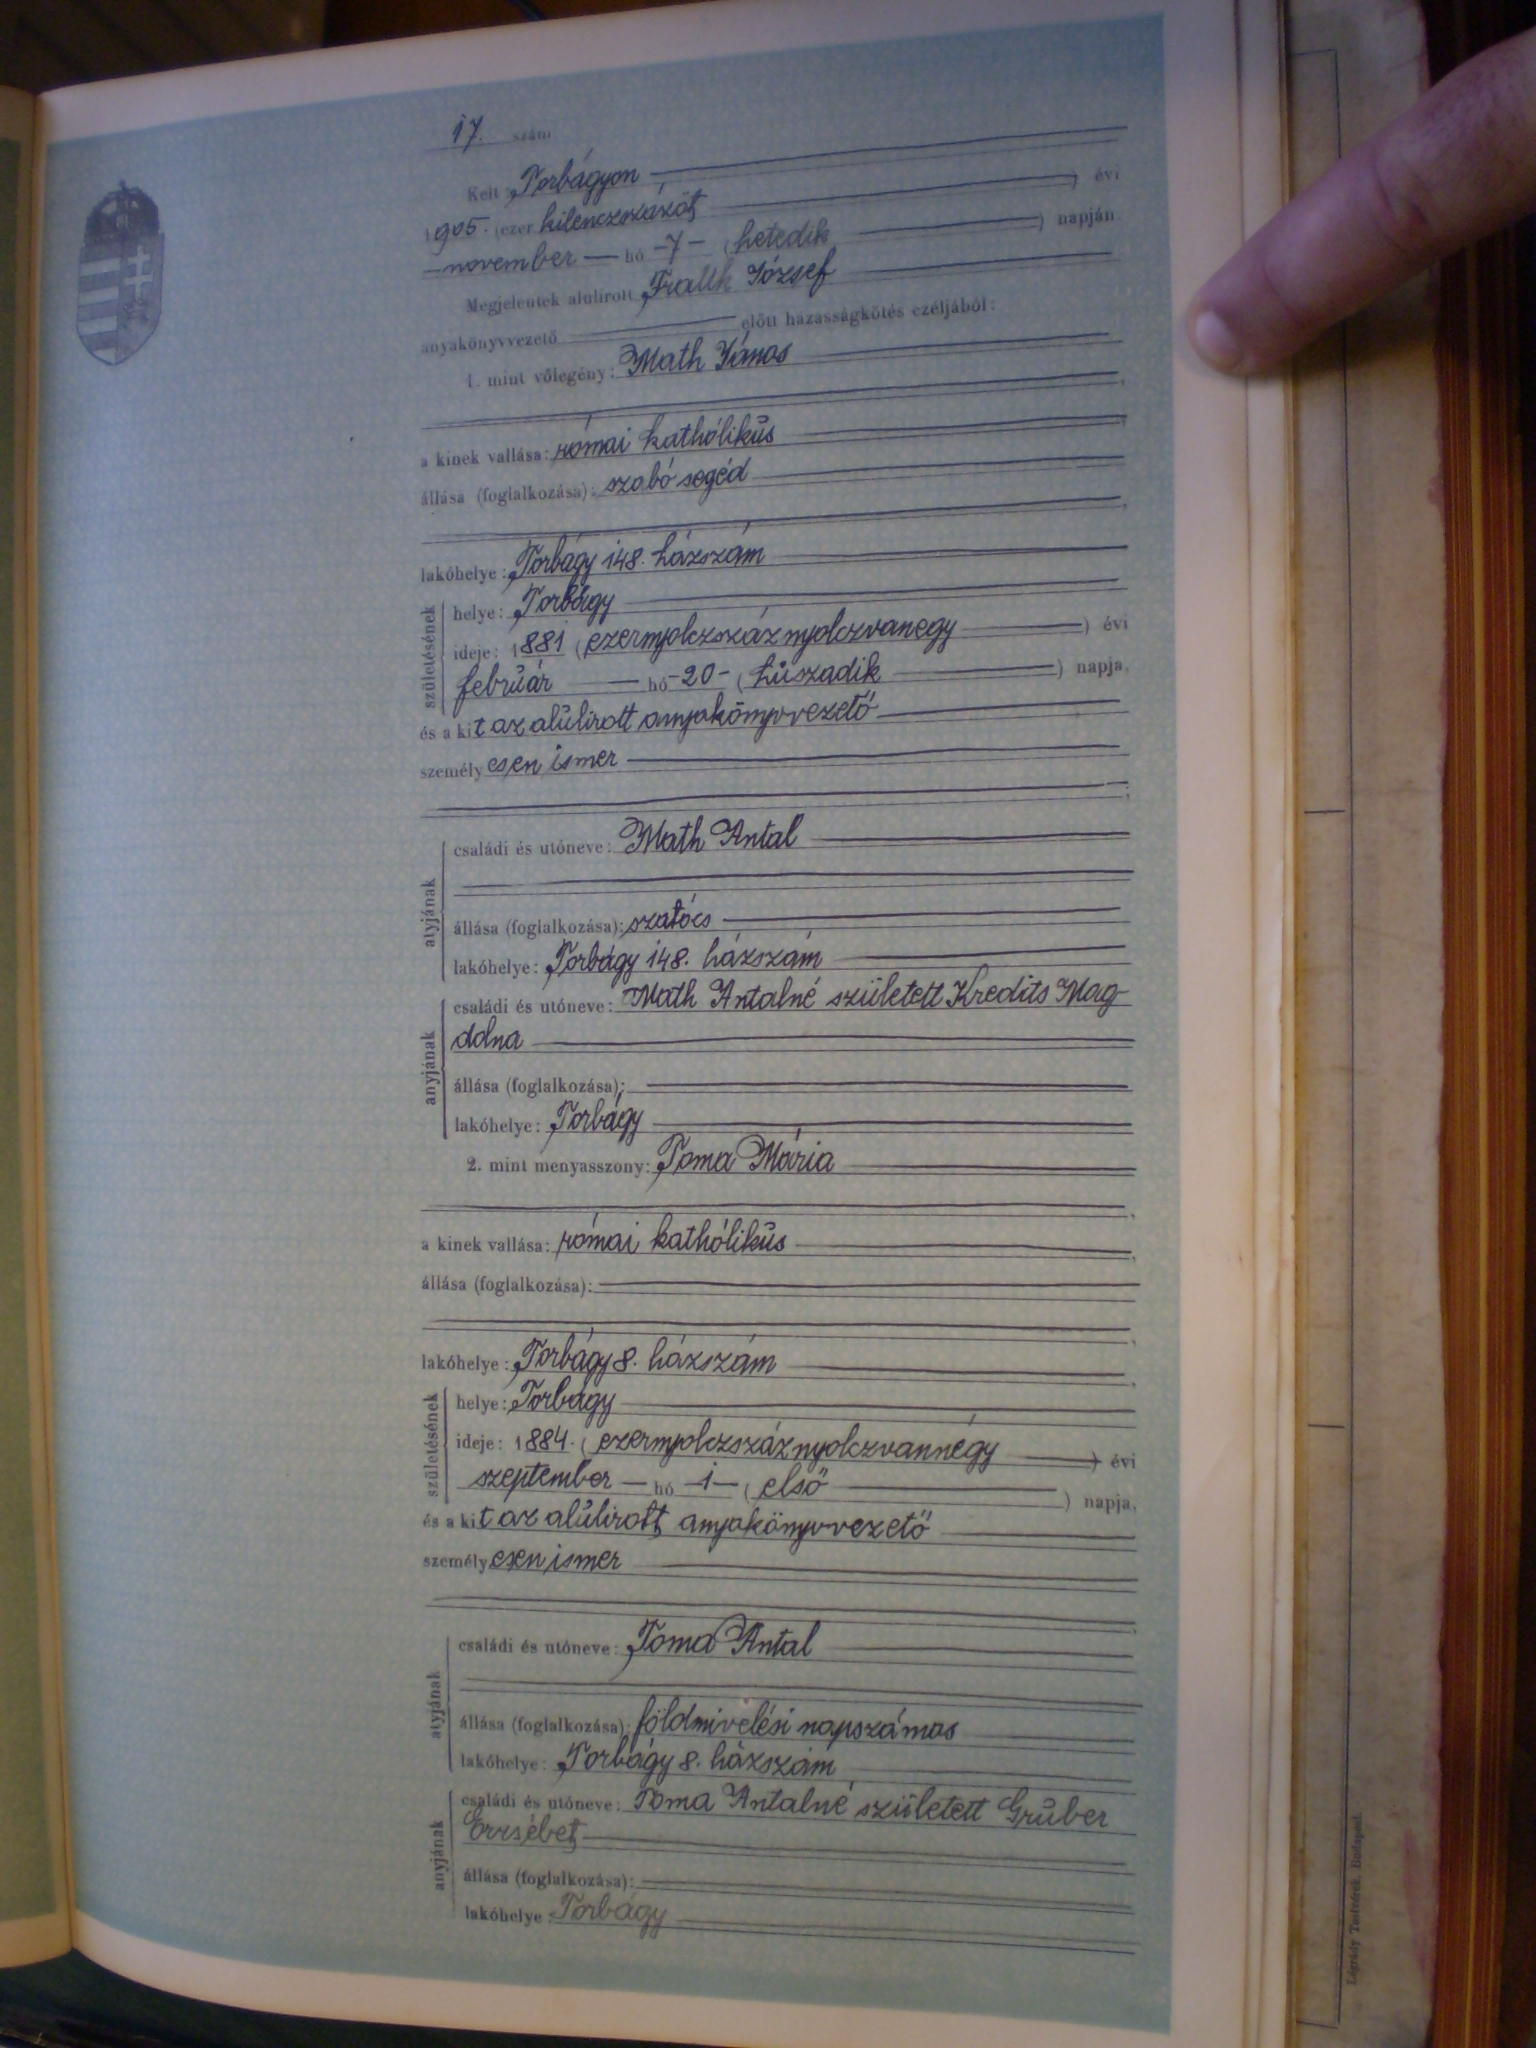 17. szám
Kelt: Torbágyon
1905. (ezer kilenczszázöt) évi
november hó -7- (hetedik) napján.
Megjelentek alulírott József
anyakönyvvezető előtt házasságkötés czéljából:
1. mint vőlegény: Math János
a kinek vallása: római kathólikus
állása (foglalkozása): szabó segéd
lakóhelye: Torbágy 148. házszám
születésének
helye: Torbágy
ideje: 1881 (ezernyolczszáznyolczvanegy) évi
február hó -20- (húszadik) napja,
és a kit az alulirott anyakönyvvezető
személyesen ismer
atyjának
családi és utóneve: Math Antal
állása (foglalkozása): szatócs
lakóhelye: Torbágy 148. házszám
anyjának
családi és utóneve: Math Antalné született Kredits Mag
ddna
állása (foglalkozása):
lakóhelye: Torbágy
2. mint menyasszony: Toma Mária
a kinek vallása: római kathólikus
állása (foglalkozása):
lakóhelye: Torbágy 8. házszám
születésének
helye: Torbágy
ideje: 1884. (ezernyolczszáznyolczvannégy) évi
szeptember hó -1- (első) napja,
és a kit az alulirott anyakönyvvezető
személyesen ismer
atyjának
családi és utóneve: Toma Antal
állása (foglalkozása): földmivelési napszámos
lakóhelye: Torbágy 8. házszám
anyjának
családi és utóneve: Toma Antalné született Gruber
Erzsébet
állása (foglalkozása):
lakóhelye: Torbágy
Légrády Testvérek, Budapest.